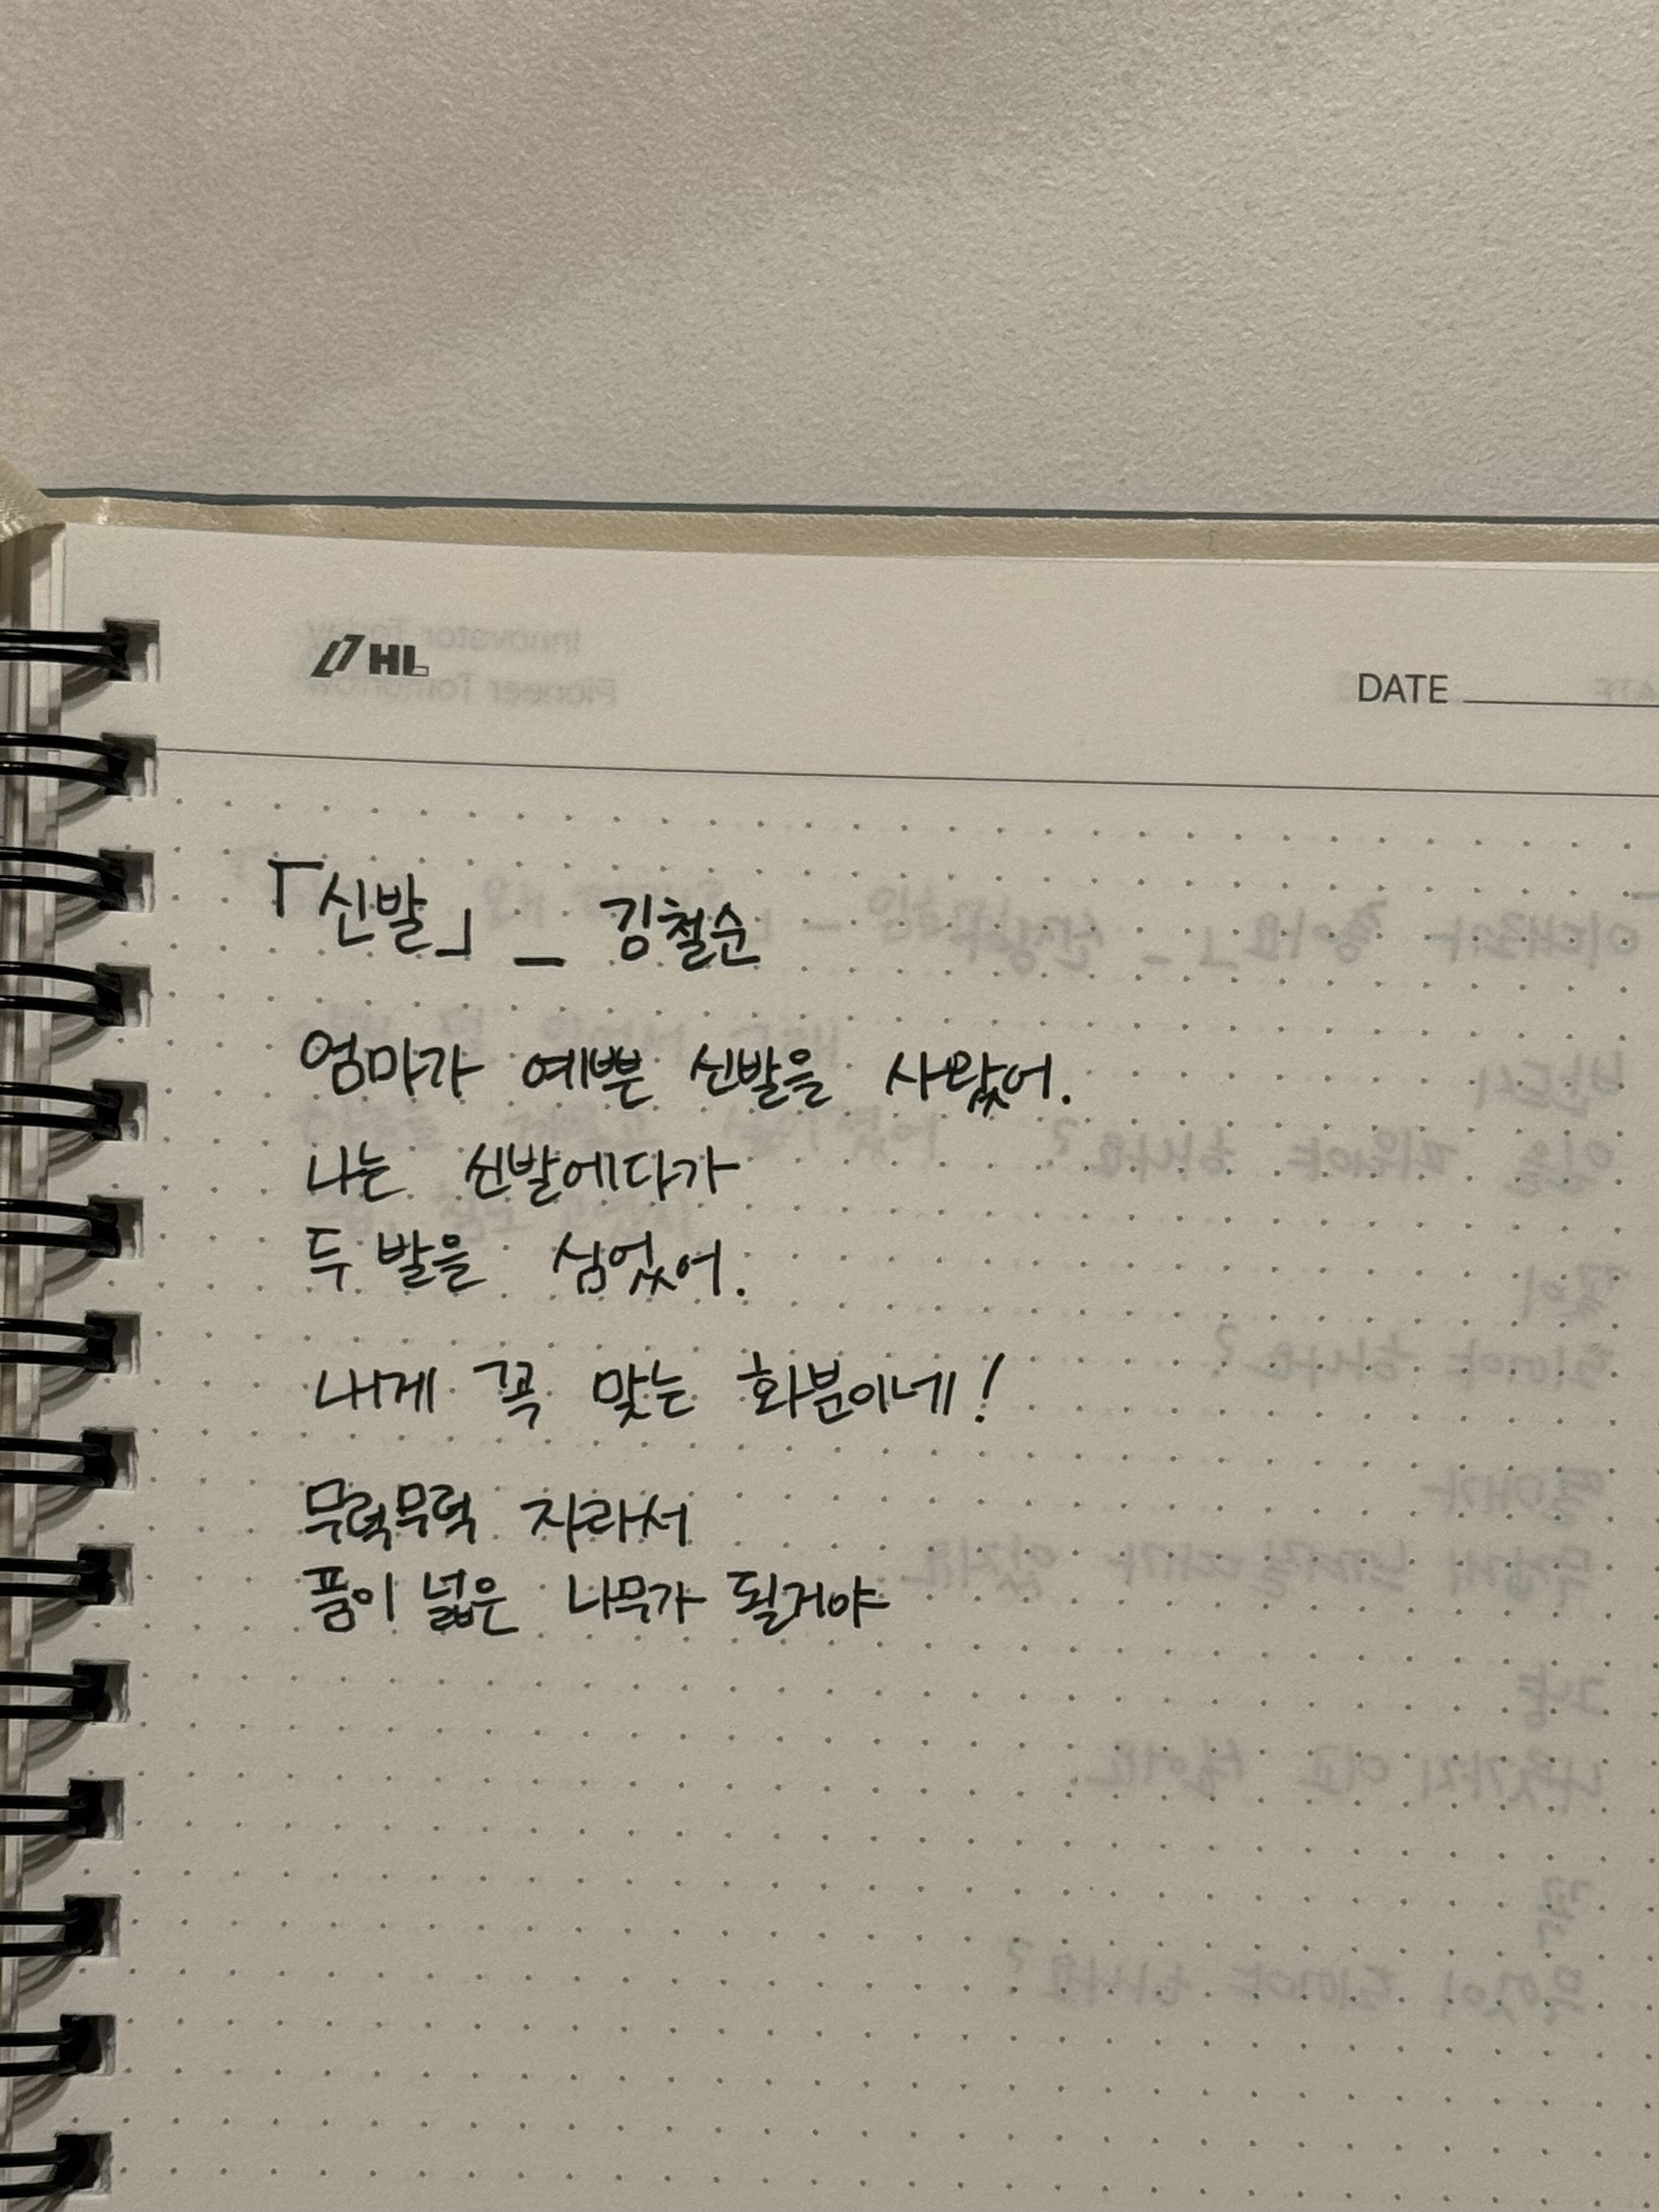 HL
DATE
「신발」 _ 김철순
엄마가 예쁜 신발을 사왔어.
나는 신발에다가
두 발을 심었어.
내게 꼭 맞는 화분이네!
무럭무럭 자라서
품이 넓은 나무가 될거야